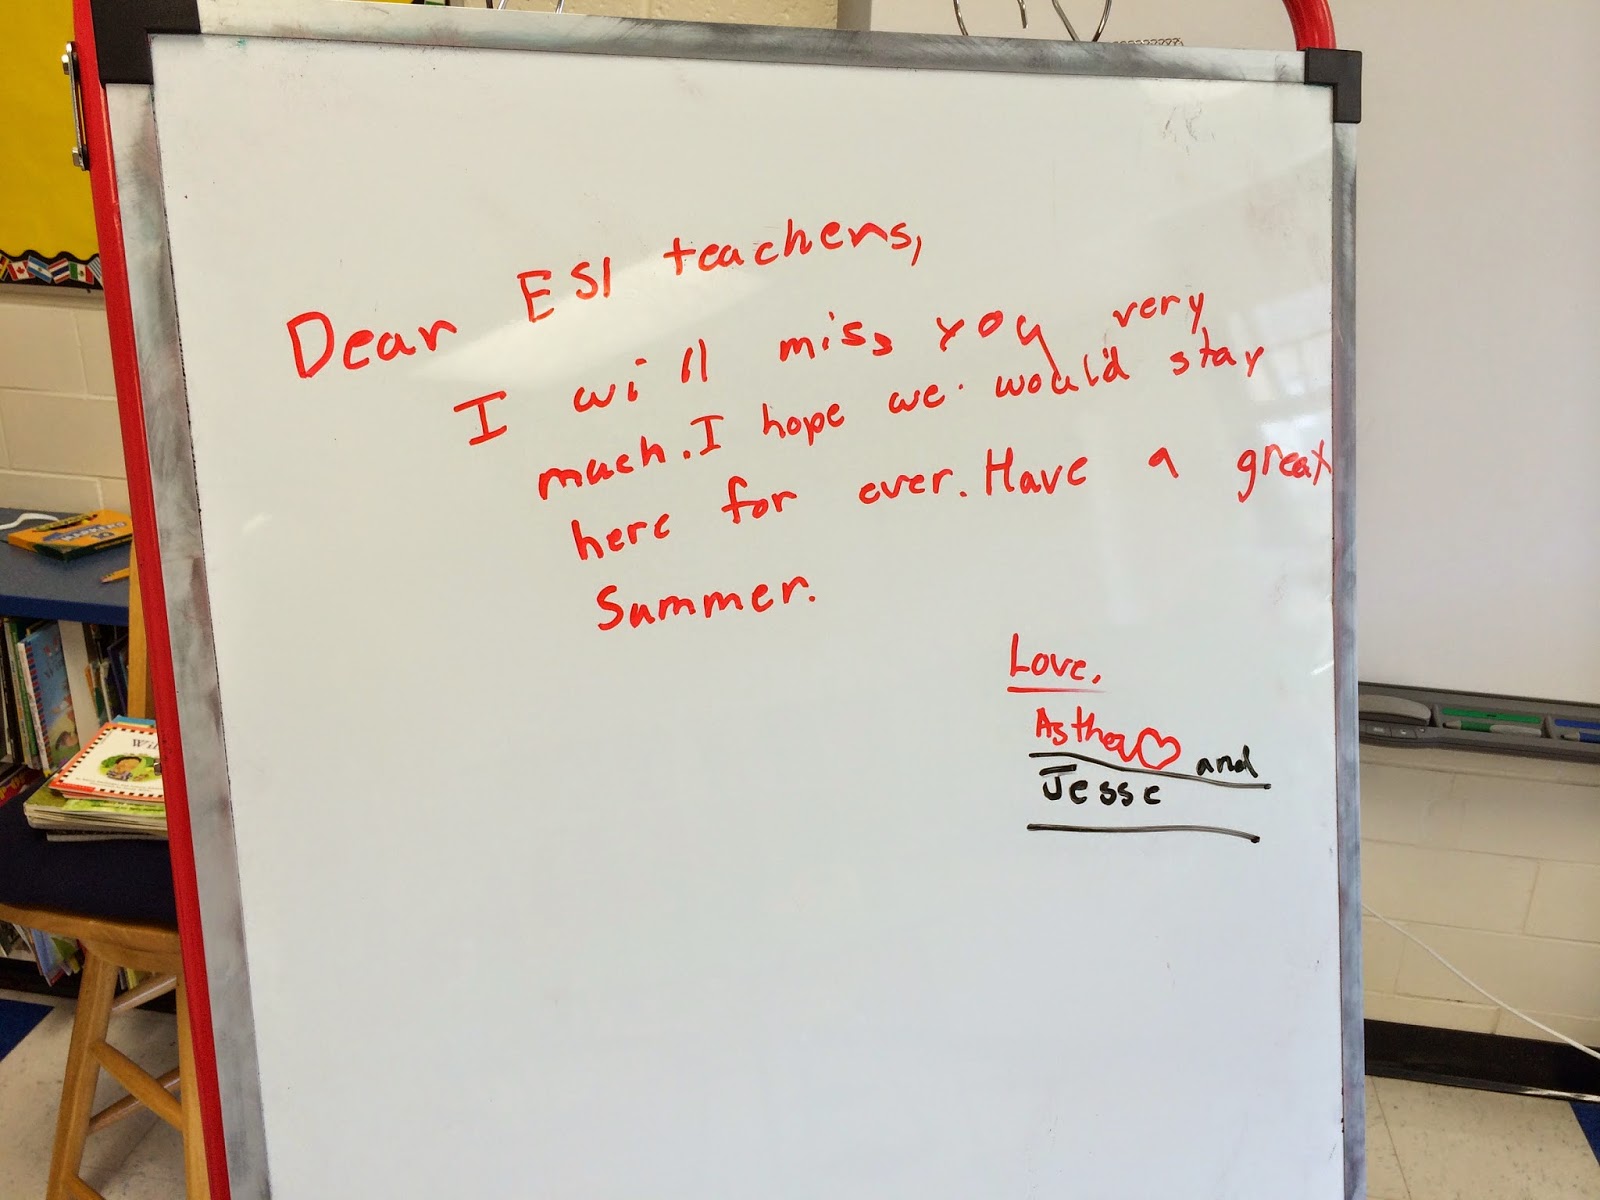 Dear ESl teachers,
I will miss you very
much. I hope we would stay
here for ever. Have a great
Summer.
Love,
Asthea
and
Jesse